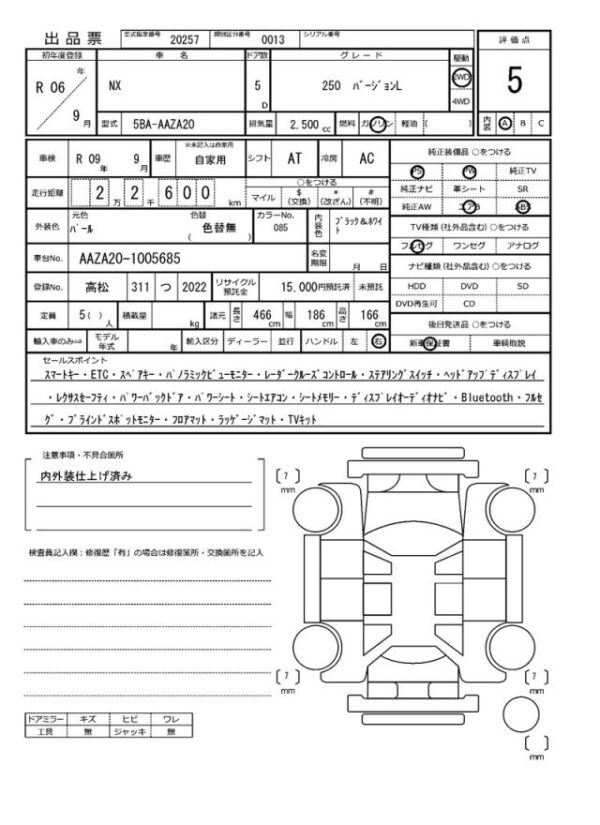 出品票 形式指定番号 20257 類別区分番号 0013 シリアル番号
初年度登録 車名 ドア数 グレード 駆動 評価点
R 06 年 9 月 NX 5 D 250 バージョンL 2WD 4WD 5
型式 5BA-AAZA20 排気量 2,500 cc 燃料 ガソリン 軽油 ( ) 内装 A B C
車検 R 09 年 9 月 車歴 ※未記入は自家用 自家用 シフト AT 冷房 AC
純正装備品 ○をつける
PS PW 純正TV
純正ナビ 革シート SR
純正AW エアB ABS
走行距離 2 万 2 千 6 0 0 km ○をつける マイル $ (交換) * (改ざん) # (不明)
外装色 元色 パール 色替 ( 色替無 ) カラーNo. 085 内装色 ブラック&ホワイト
TV種類 (社外品含む) ○をつける
フルセグ ワンセグ アナログ
車台No. AAZA20-1005685 名変期限 月 日
ナビ種類 (社外品含む) ○をつける
HDD DVD SD
DVD再生可 CD
登録No. 高松 311 つ 2022 リサイクル預託金 15,000円預託済 未預託
定員 5 ( ) 人 積載量 kg 諸元 長さ 466 cm 幅 186 cm 高さ 166 cm
後日発送品 ○をつける
新車保証書 車輌取説
輸入車のみ⇒ モデル年式 年 輸入区分 ディーラー 並行 ハンドル 左 右
セールスポイント
スマートキー・ETC・スペアキー・パノラミックビューモニター・レーダークルーズコントロール・ステアリングスイッチ・ヘッドアップディスプレイ
・レクサスセーフティ・パワーバックドア・パワーシート・シートエアコン・シートメモリー・ディスプレイオーディオナビ・Bluetooth・フルセ
グ・ブラインドスポットモニター・フロアマット・ラッゲージマット・TVキット
注意事項・不具合箇所
内外装仕上げ済み
検査員記入欄：修復歴「有」の場合は修復箇所・交換箇所を記入
( 7 ) mm ( 7 ) mm
( 7 ) mm ( 7 ) mm
( ) mm
ドアミラー キズ ヒビ ワレ
工具 無 ジャッキ 無